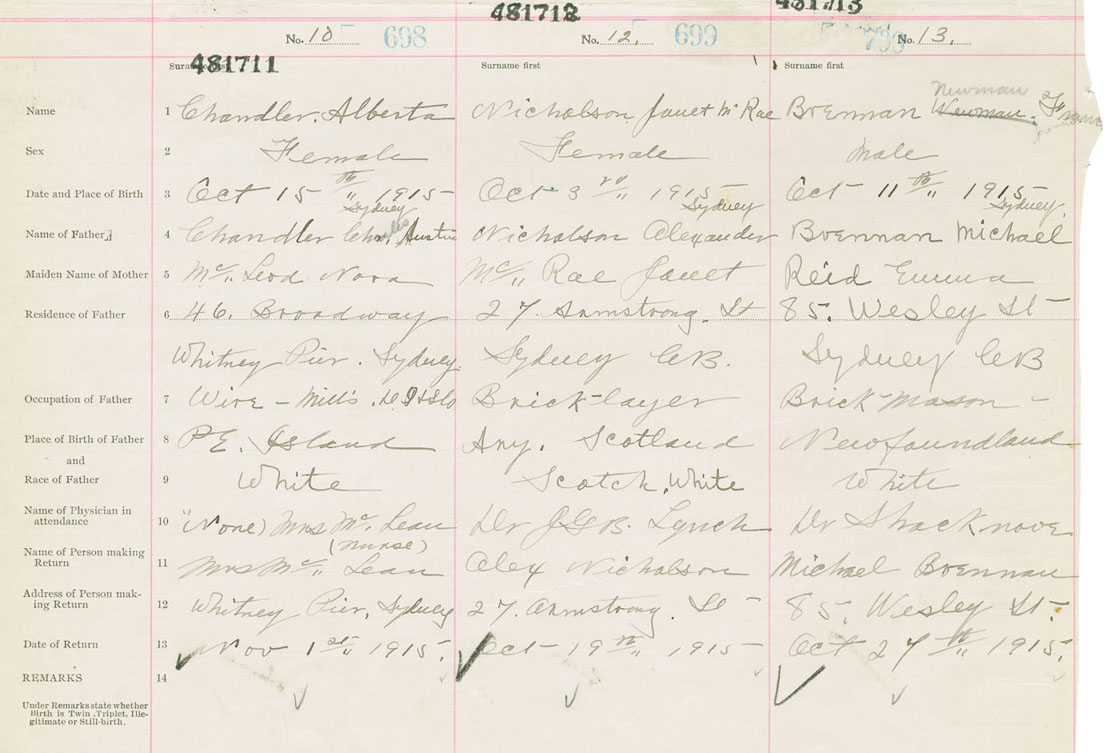 481712 481713
No. 10 698 No. 12. 699 No. 13.
481711
Surname first Surname first Surname first
Name 1 Chandler, Alberta Nicholson Janet McRae Brennan Newman
Sex 2 Female Female Male
Date and Place of Birth 3 Oct 15th 1915 Oct 3rd 1915 Oct 11th 1915
Sydney Sydney Sydney.
Name of Father 4 Chandler Austin Nicholson Alexander Brennan Michael
Maiden Name of Mother 5 Mc Leod Nora Mc Rae Janet Reid Emma
Residence of Father 6 46. Broadway 27. Armstrong. St 85. Wesley St
Whitney Pier. Sydney. Sydney CB. Sydney CB
Occupation of Father 7 Wire - Mills. Brick-layer Brick-mason -
Place of Birth of Father 8 P.E. Island Scotland Newfoundland
and
Race of Father 9 White Scotch, White White
Name of Physician in
attendance 10 "(None) Mrs Mc Lean Dr J.G.B. Lynch Dr Shacknove
(Nurse)
Name of Person making
Return 11 Mrs Mc Lean Alex Nicholson Michael Brennan
Address of Person mak-
ing Return 12 Whitney Pier, Sydney 27. Armstrong. St 85. Wesley St-
Date of Return 13 Nov 1st 1915. Oct 19th 1915 Oct 27th 1915.
REMARKS 14
Under Remarks state whether
Birth is Twin, Triplet, Ille-
gitimate or Still-birth.